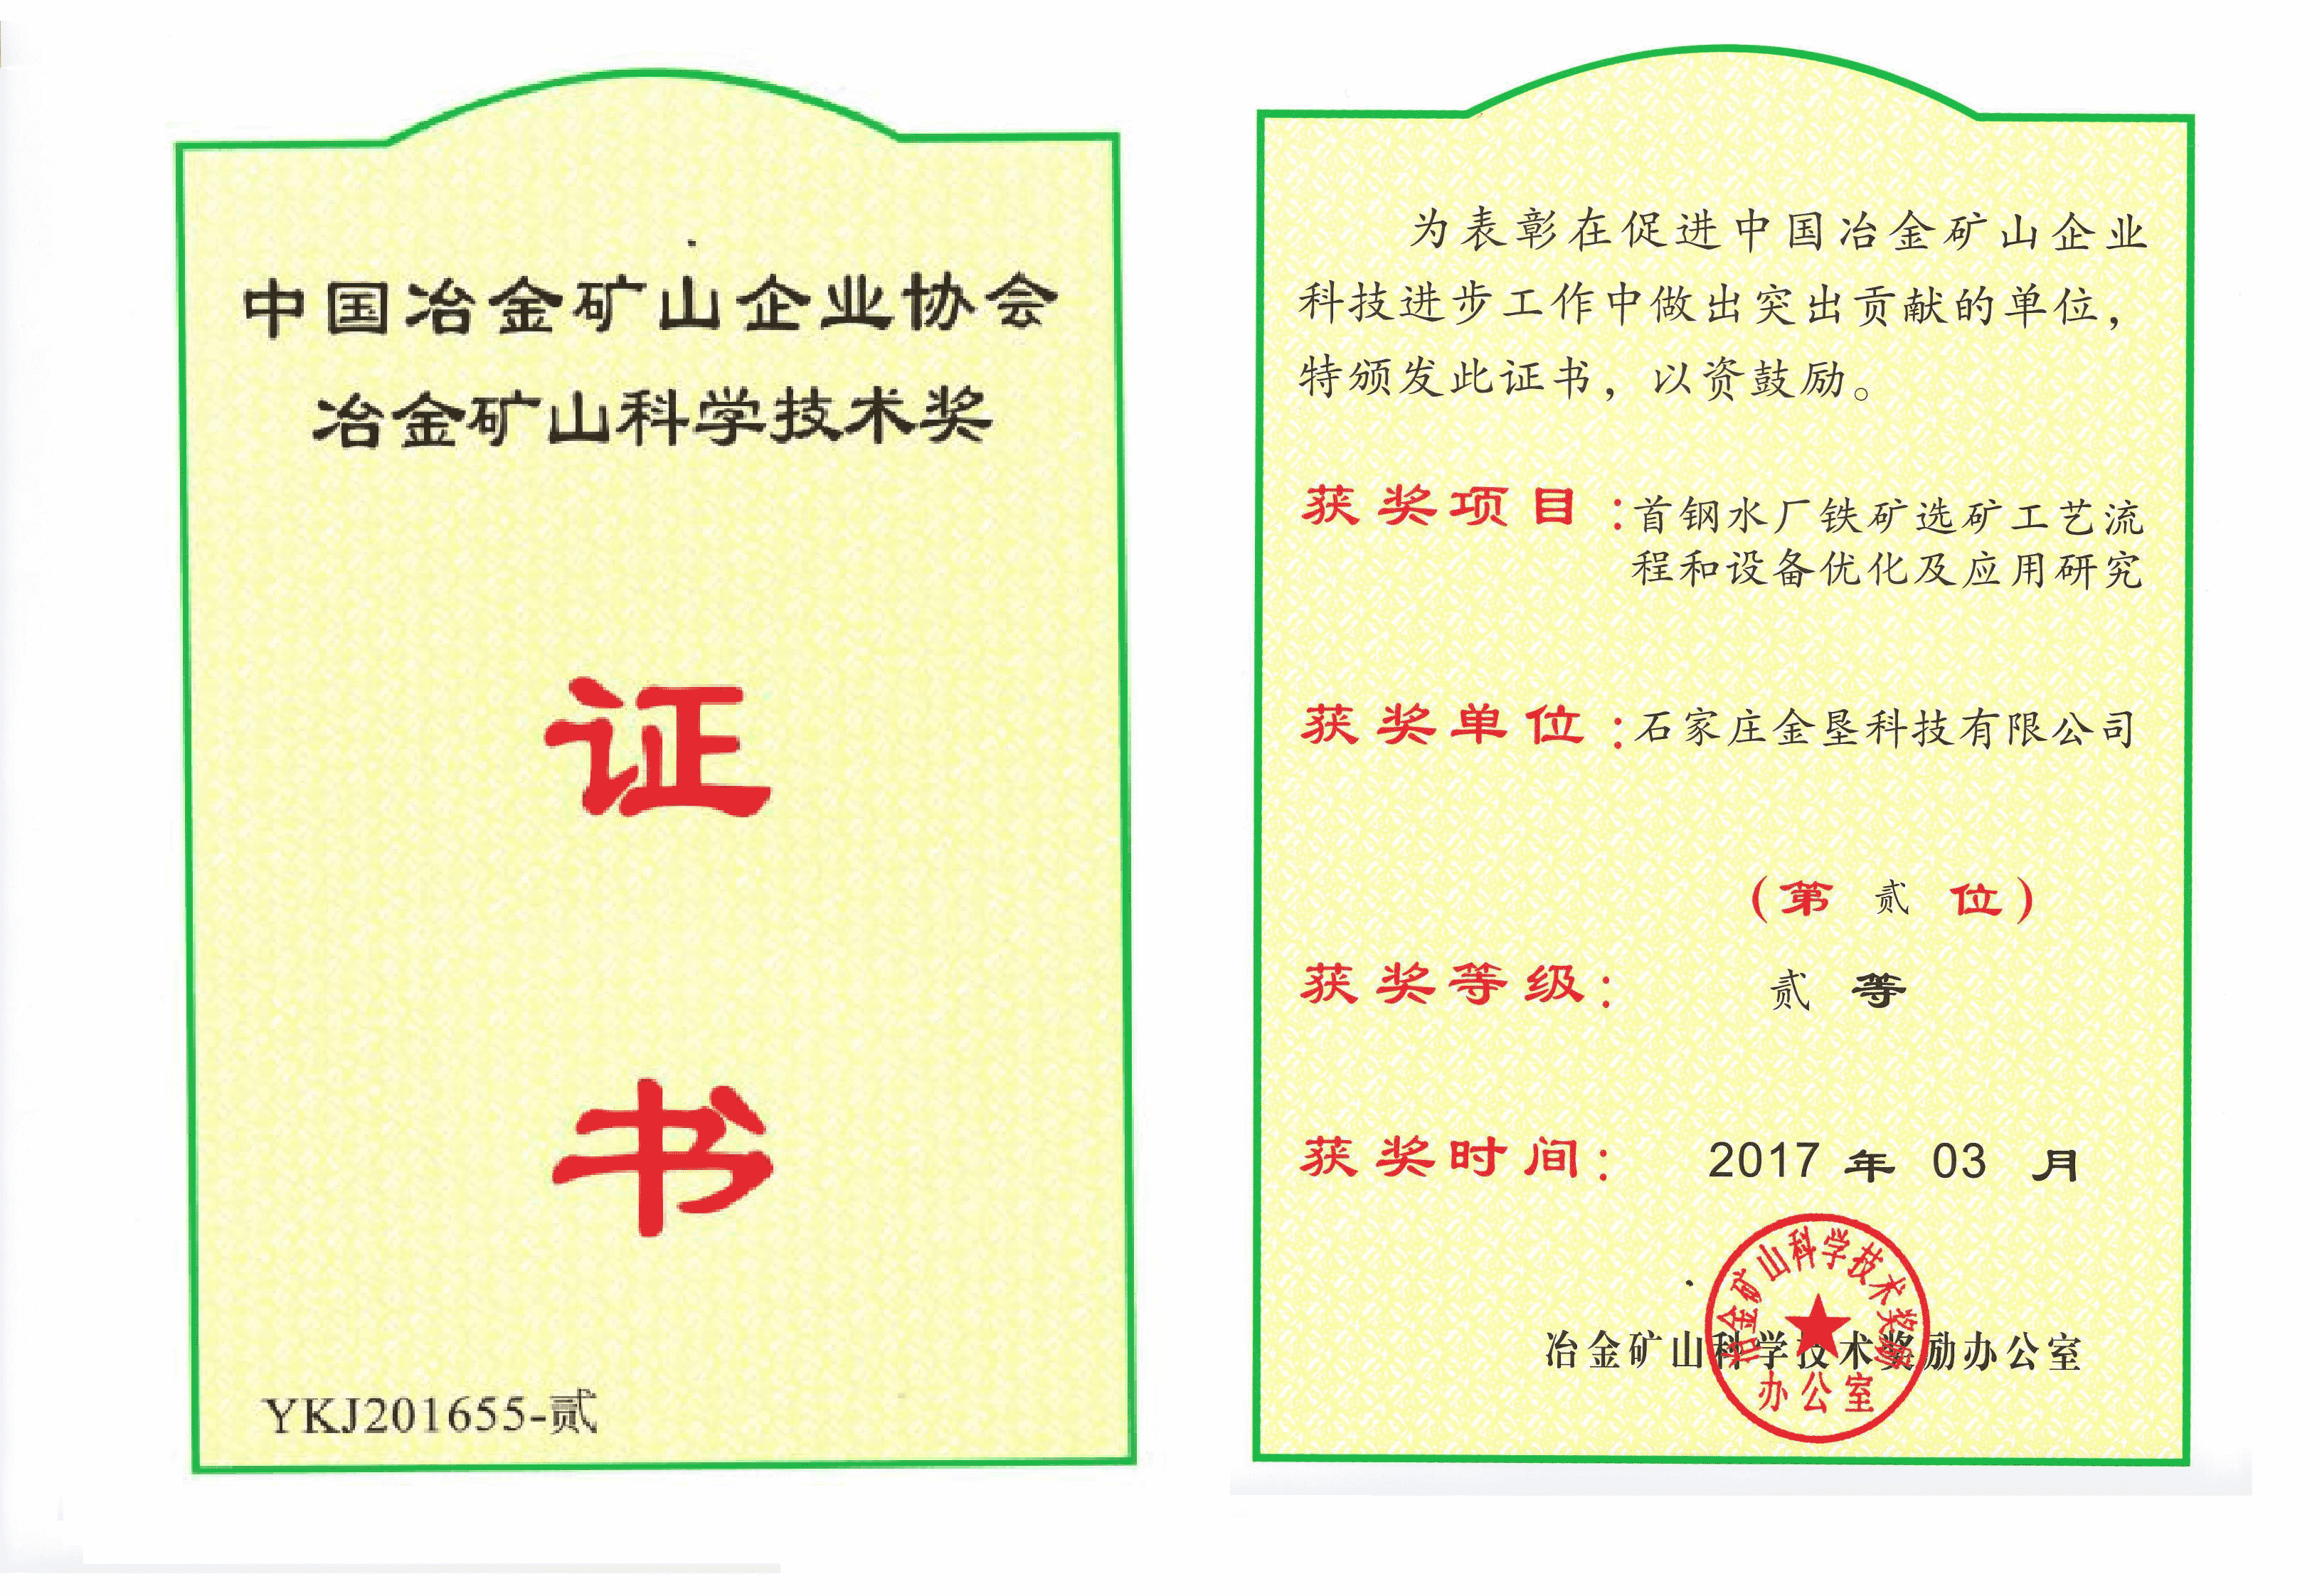 中国冶金矿山企业协会
冶金矿山科学技术奖
证
书
YKJ201655-贰
为表彰在促进中国冶金矿山企业
科技进步工作中做出突出贡献的单位，
特颁发此证书，以资鼓励。
获奖项目：首钢水厂铁矿选矿工艺流
程和设备优化及应用研究
获奖单位：石家庄金垦科技有限公司
（第 贰 位）
获奖等级： 贰 等
获奖时间： 2017 年 03 月
冶金矿山科学技术奖励办公室
冶金矿山科学技术奖励
办公室